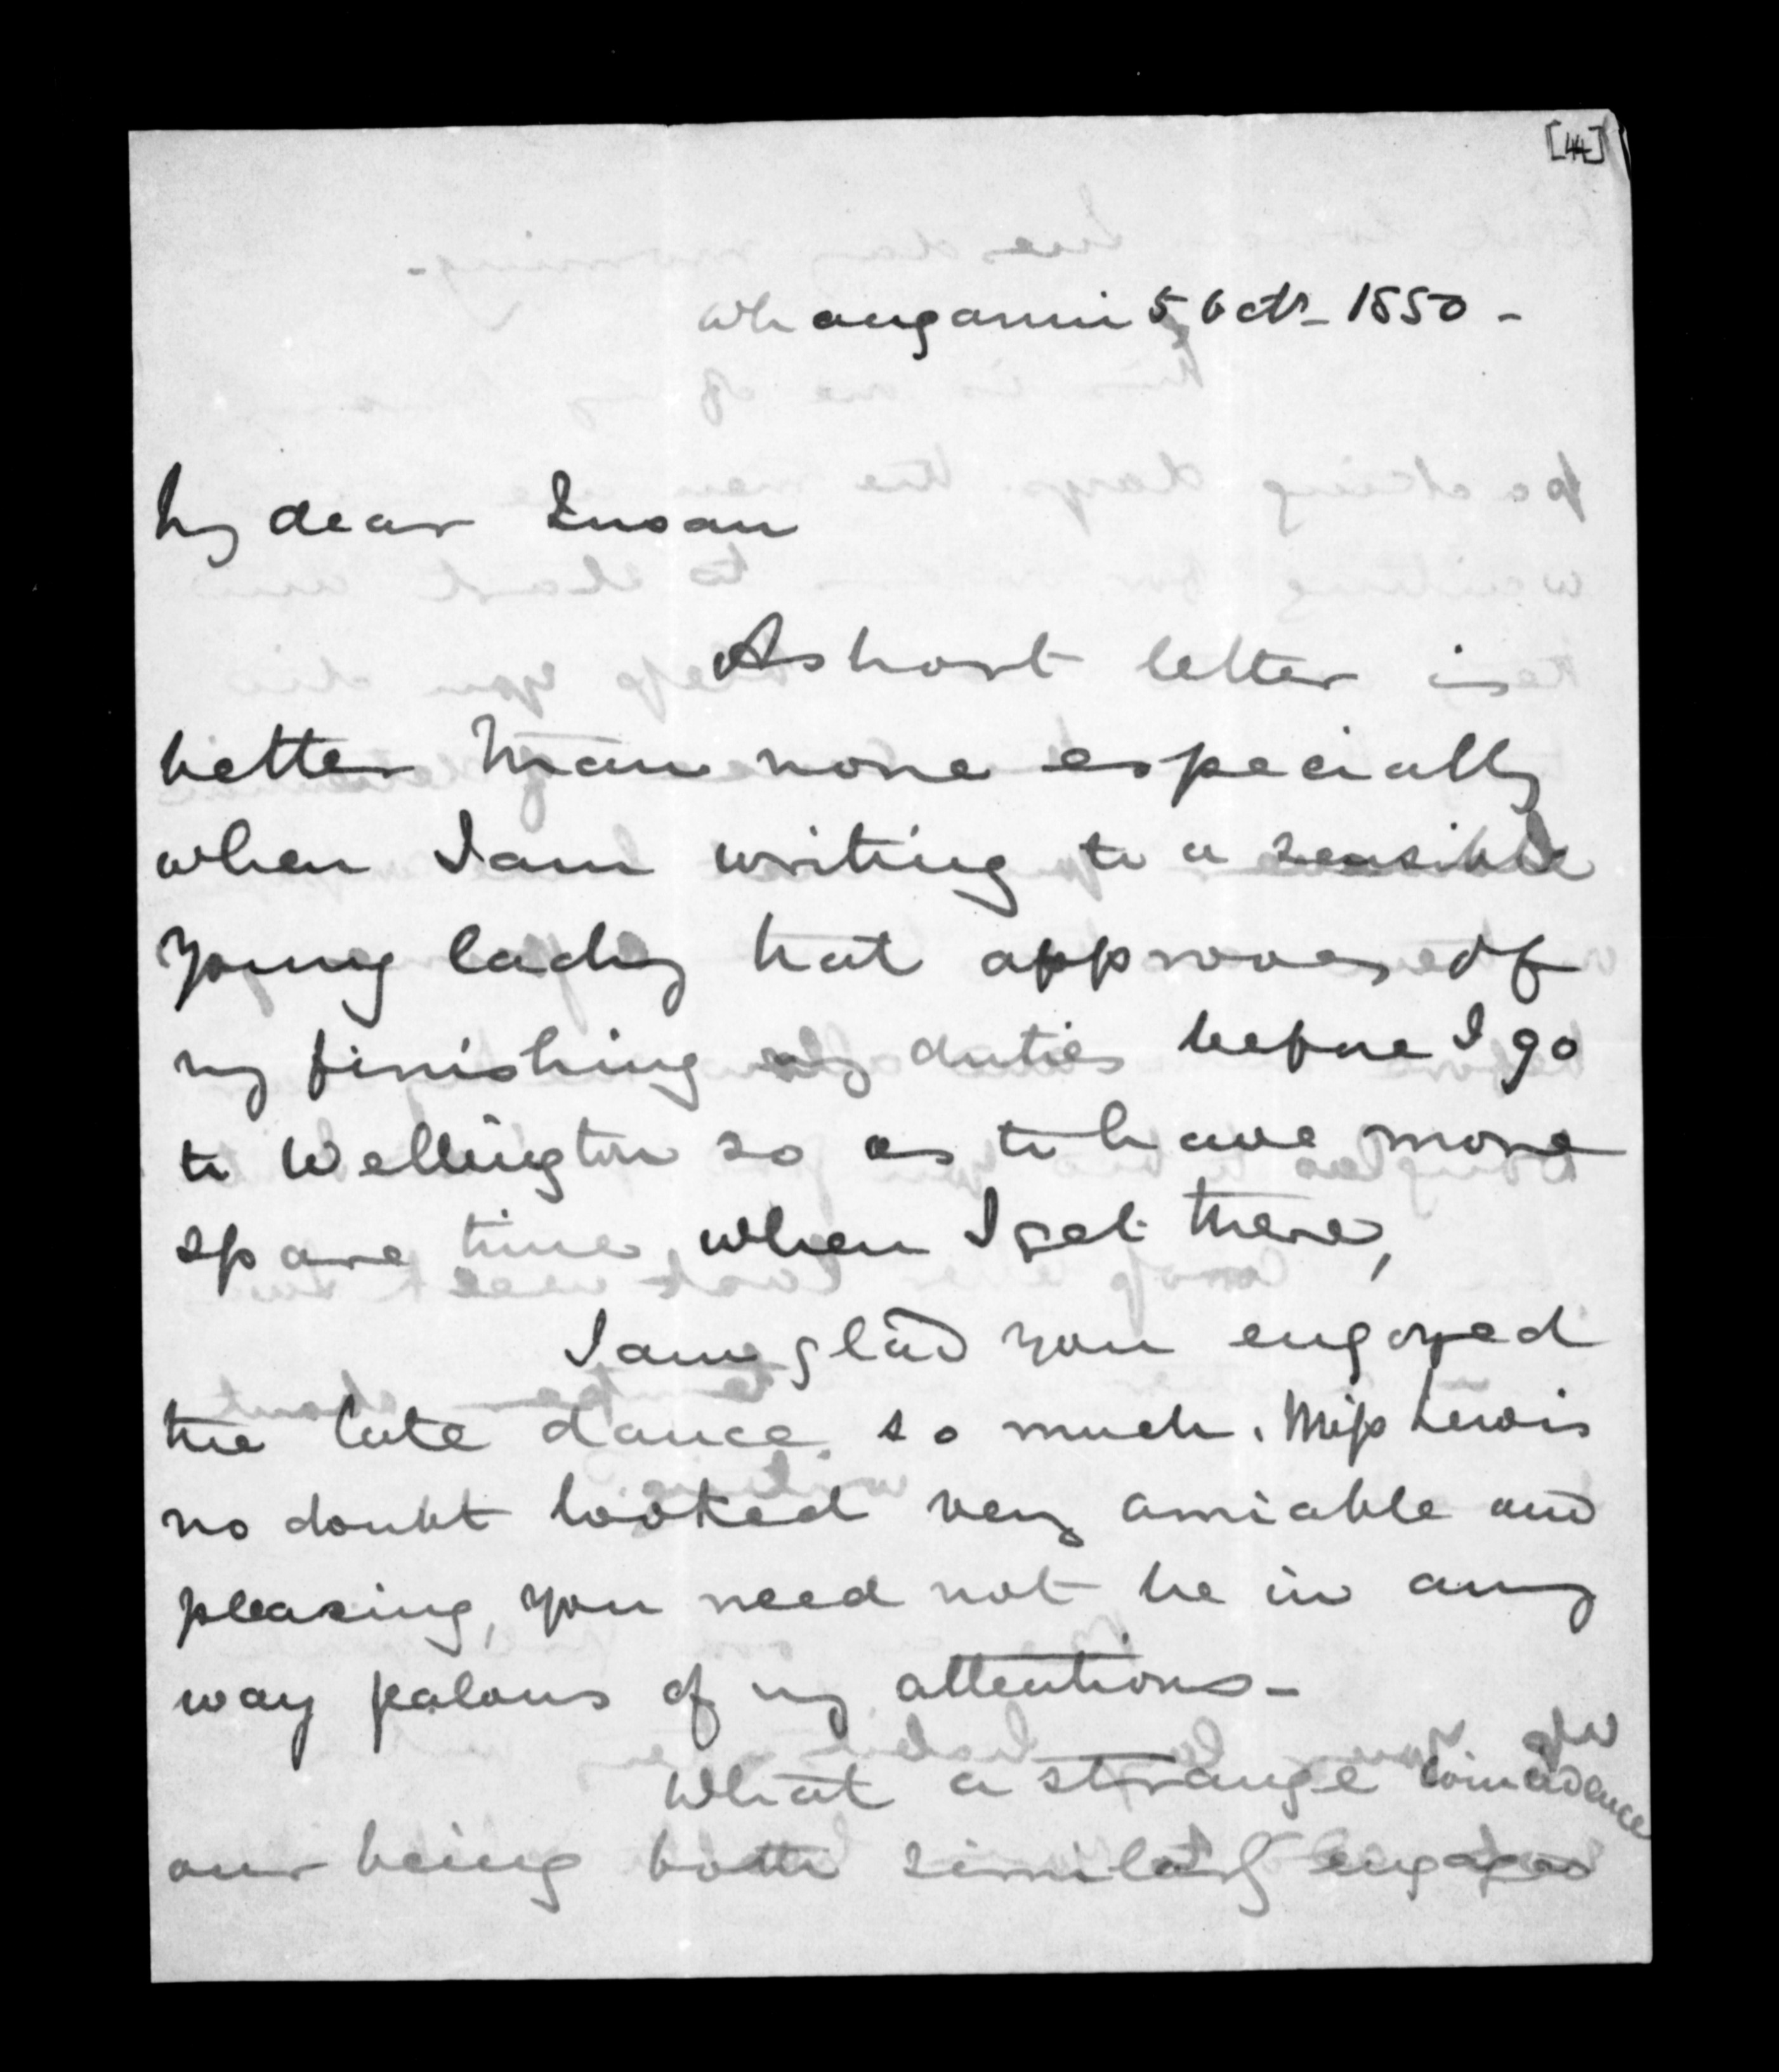 [44]
Whanganui 5 Octr- 1850 -
My dear Susan
A short letter is
better than none especially
when I am writing to a sensible
young lady that approves of
my finishing my duties before I go
to Wellington so as to have more
spare time, when I get there,
I am glad you engoyed
the late dance so much. Miss Lewis
no doubt looked very amiable and
pleasing, you need not be in any
way jealous of my attentions-
What a strange coincidence
our being both similarly engaged